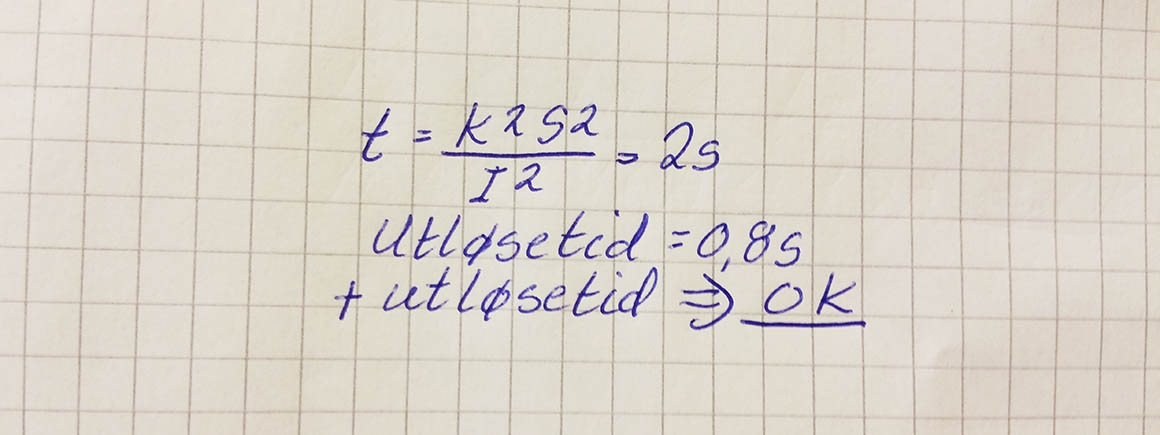 t = K²S² / I² = 2s
Utløsetid = 0,8s
+ utløsetid ⇒ OK